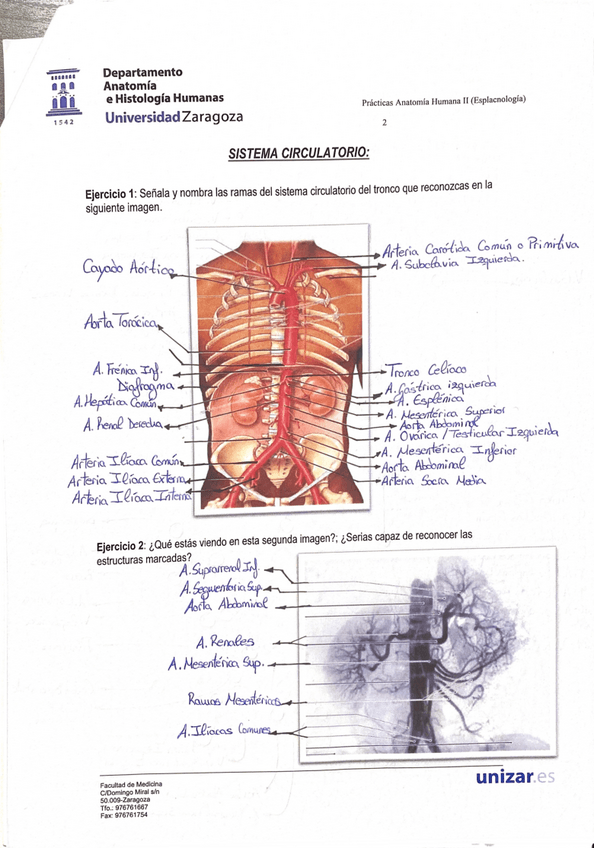 Departamento
Anatomía
e Histología Humanas
Universidad Zaragoza
1542
Prácticas Anatomía Humana II (Esplacnología)
2
SISTEMA CIRCULATORIO:
Ejercicio 1: Señala y nombra las ramas del sistema circulatorio del tronco que reconozcas en la
siguiente imagen.
Arteria Carótida Común o Primitiva
A. Subclavia Izquierda.
Cayado Aórtico
Aorta Torácica
A. Frénica Inf.
Diafragma
A. Hepática Común
A. Renal Derecha
Arteria Ilíaca Común
Arteria Ilíaca Externa
Arteria Ilíaca Interna
Tronco Celíaco
A. Gástrica izquierda
A. Esplénica
A. Mesentérica Superior
Aorta Abdominal
A. Ovárica / Testicular Izquierda
A. Mesentérica Inferior
Aorta Abdominal
Arteria Sacra Media
Ejercicio 2: ¿Qué estás viendo en esta segunda imagen?; ¿Serias capaz de reconocer las
estructuras marcadas?
A. Suprarrenal Inf.
A. Segmentaria Sup.
Aorta Abdominal
A. Renales
A. Mesentérica Sup.
Ramas Mesentéricas
A. Ilíacas Comunes
unizar.es
Facultad de Medicina
C/Domingo Miral s/n
50.009-Zaragoza
Tfo.: 976761667
Fax: 976761754